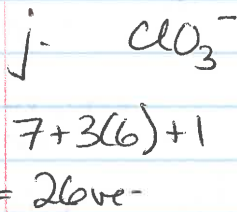 j. ClO₃⁻
7+3(6)+1
= 26ve-